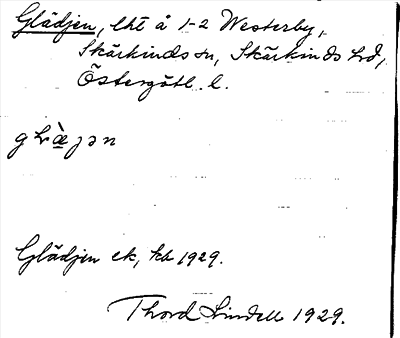 Glädjen, lht å 1-2 Westerby,
Skärkinds sn, Skärkinds hd,
Östergötl. l.
Glädjen ek, kb 1929.
Thord Lindell 1929.